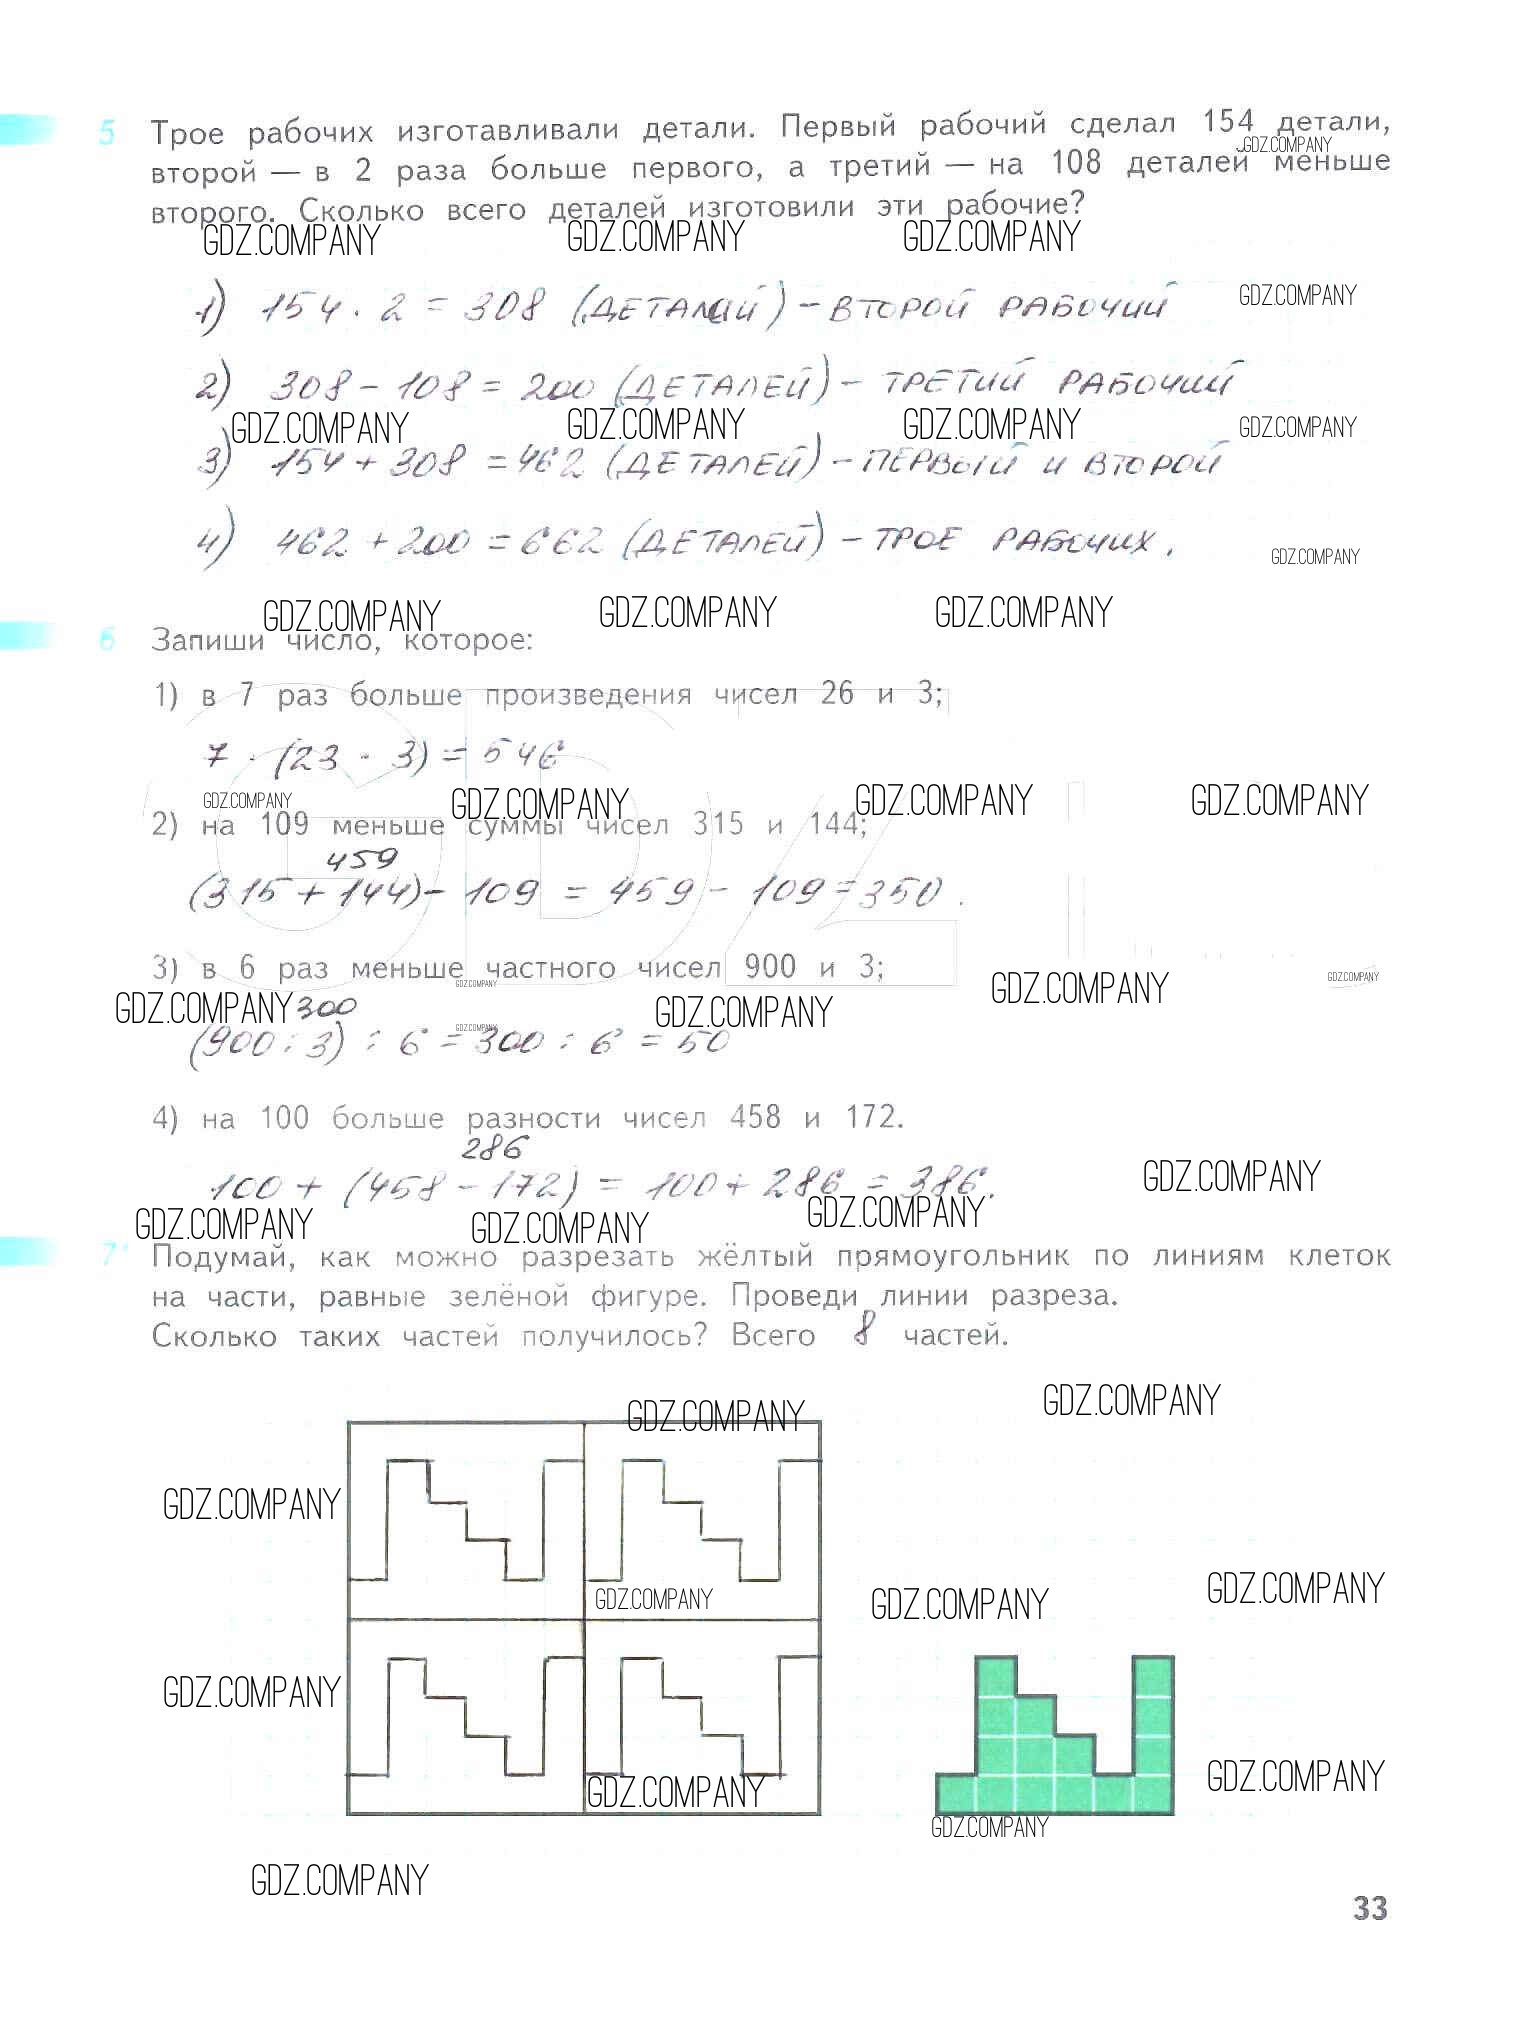 5 Трое рабочих изготавливали детали. Первый рабочий сделал 154 детали,
GDZ.COMPANY
второй — в 2 раза больше первого, а третий — на 108 деталей меньше
второго. Сколько всего деталей изготовили эти рабочие?
GDZ.COMPANY GDZ.COMPANY GDZ.COMPANY
1) 154 · 2 = 308 (ДЕТАЛЕЙ) – ВТОРОЙ РАБОЧИЙ
GDZ.COMPANY
2) 308 – 108 = 200 (ДЕТАЛЕЙ) – ТРЕТИЙ РАБОЧИЙ
GDZ.COMPANY GDZ.COMPANY GDZ.COMPANY GDZ.COMPANY
3) 154 + 308 = 462 (ДЕТАЛЕЙ) – ПЕРВЫЙ И ВТОРОЙ
4) 462 + 200 = 662 (ДЕТАЛЕЙ) – ТРОЕ РАБОЧИХ.
GDZ.COMPANY
GDZ.COMPANY GDZ.COMPANY GDZ.COMPANY
6 Запиши число, которое:
1) в 7 раз больше произведения чисел 26 и 3;
7 · (23 · 3) = 546
GDZ
GDZ.COMPANY GDZ.COMPANY GDZ.COMPANY GDZ.COMPANY
2) на 109 меньше суммы чисел 315 и 144;
459
(315 + 144) – 109 = 459 – 109 = 350.
3) в 6 раз меньше частного чисел 900 и 3;
GDZ.COMPANY GDZ.COMPANY GDZ.COMPANY
GDZ.COMPANY 300 GDZ.COMPANY
GDZ.COMPANY
(900 : 3) : 6 = 300 : 6 = 50
4) на 100 больше разности чисел 458 и 172.
286
100 + (458 – 172) = 100 + 286 = 386.
GDZ.COMPANY
GDZ.COMPANY GDZ.COMPANY GDZ.COMPANY
7* Подумай, как можно разрезать жёлтый прямоугольник по линиям клеток
на части, равные зелёной фигуре. Проведи линии разреза.
Сколько таких частей получилось? Всего 8 частей.
GDZ.COMPANY GDZ.COMPANY
GDZ.COMPANY
GDZ.COMPANY GDZ.COMPANY GDZ.COMPANY
GDZ.COMPANY
GDZ.COMPANY GDZ.COMPANY
GDZ.COMPANY
GDZ.COMPANY
33